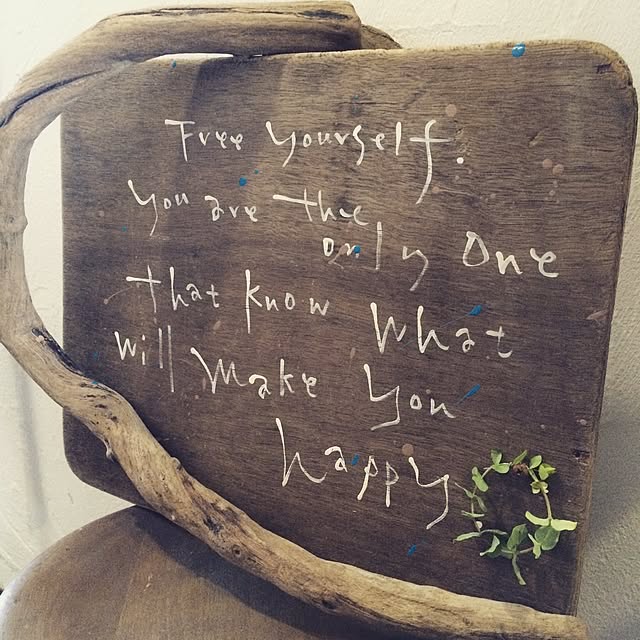 Free yourself.
you are the
only one
that know what
will make you
happy